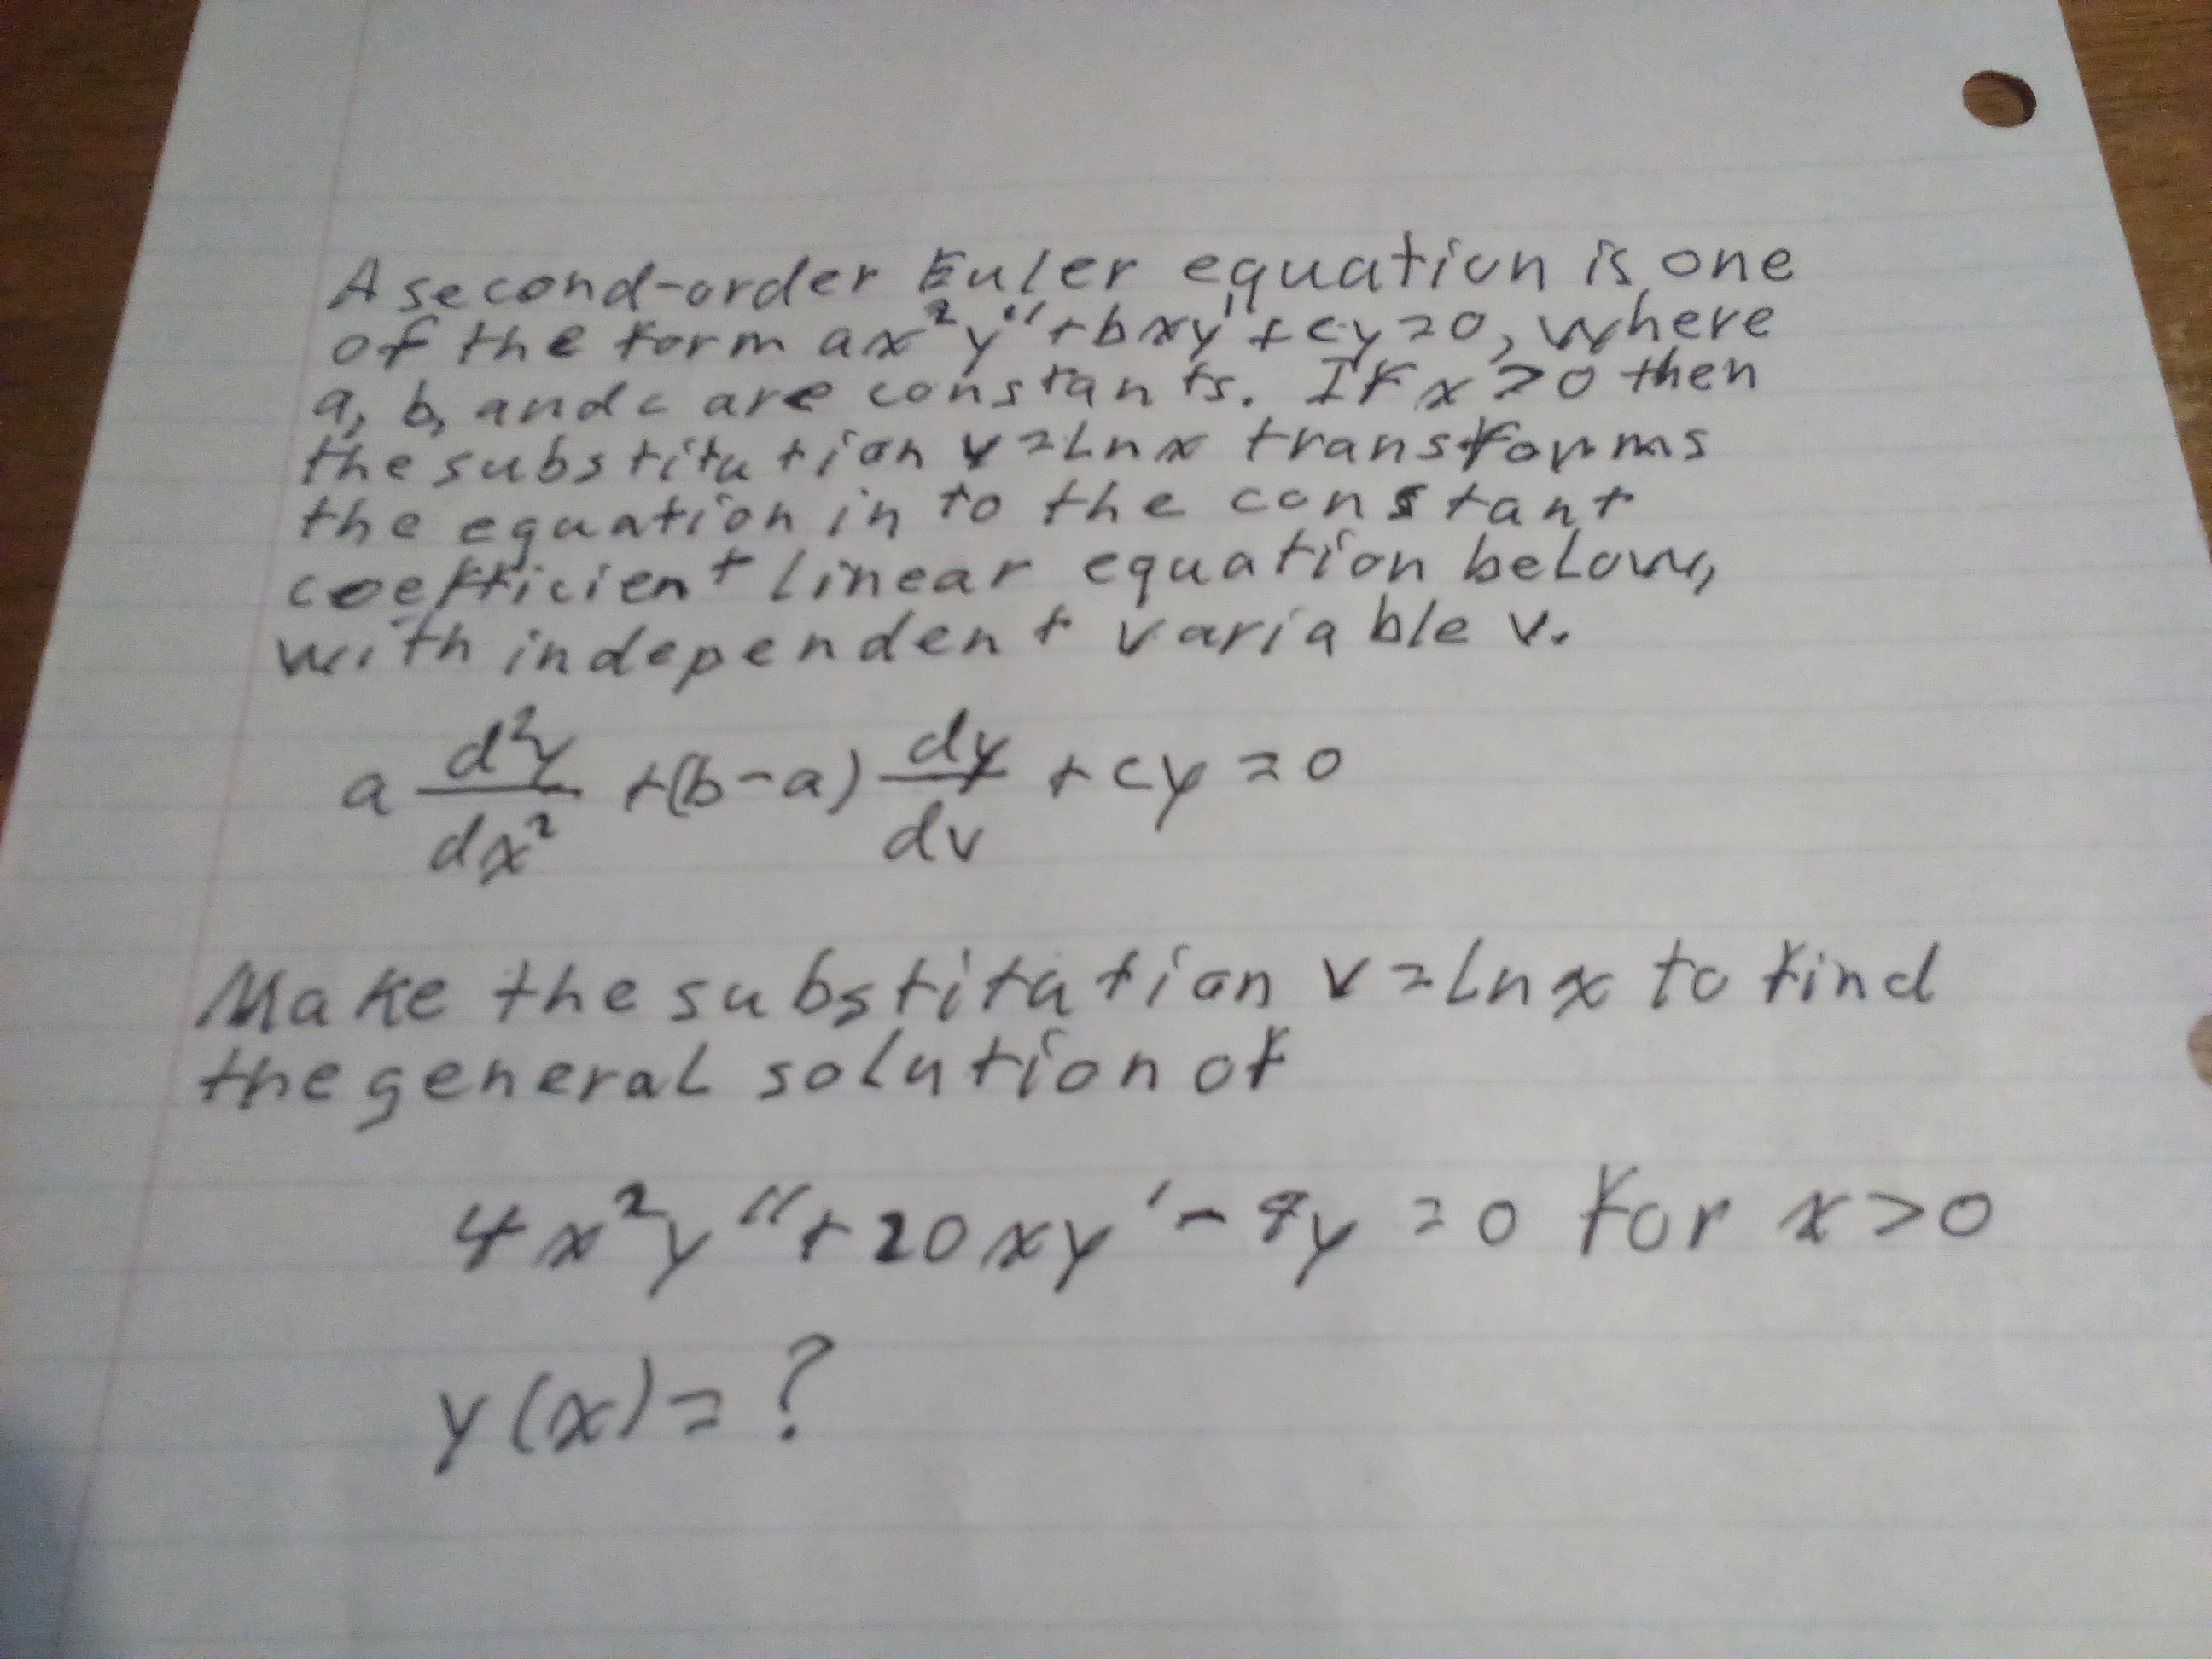 A second-order Euler equation is one
of the form ax²y"+bxy'+cy=0, where
a, b, and c are constants. If x>0 then
the substitution v=Lnx transforms
the equation in to the constant
coefficient Linear equation below,
with independent variable v.
a d²y/dx² +(b-a) dy/dv +cy=0
Make the substitution v=Lnx to find
the general solution of
4x²y"+20xy'- y=0 for x>0
y(x)=?